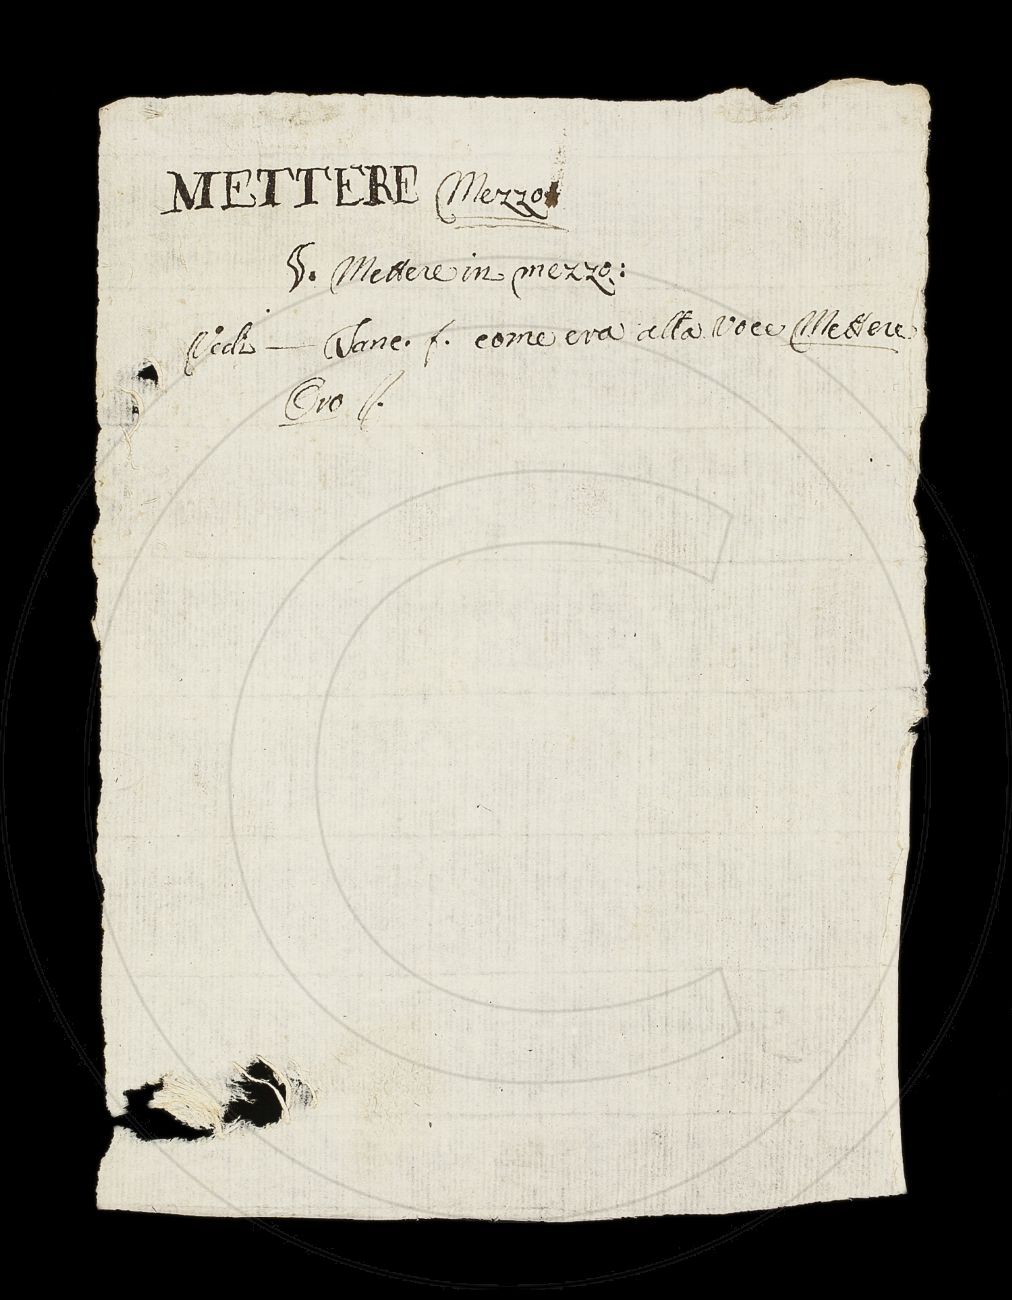 METTERE Mezzo
§. Mettere in mezzo:
Vedi — Tanc. f. come era alla Voce Mettere
Oro §.